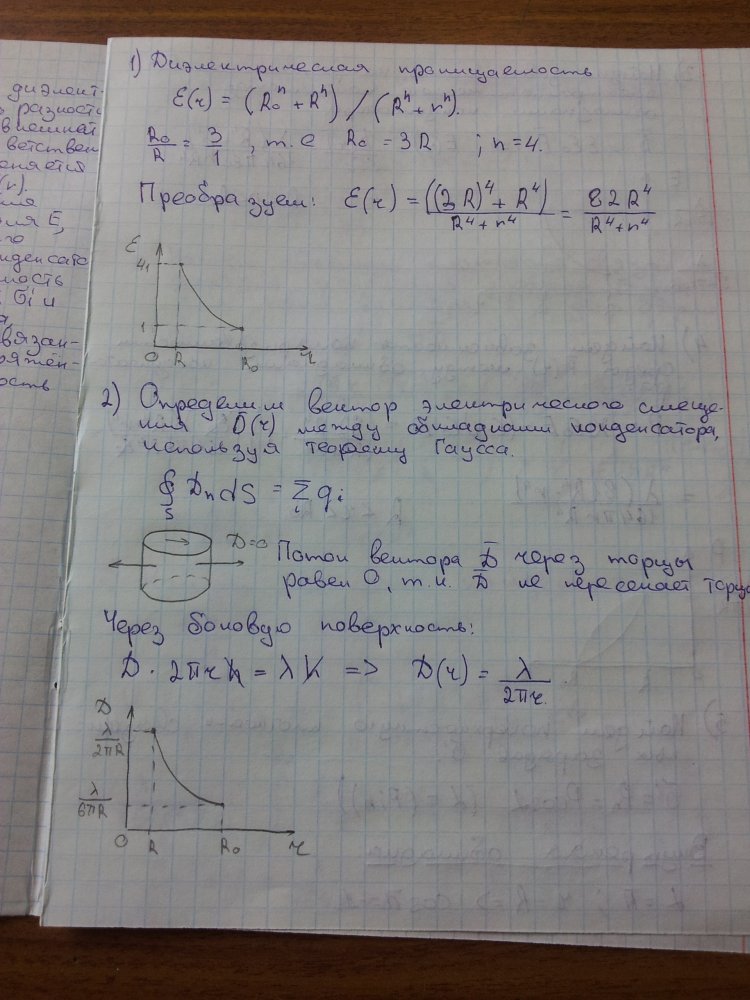 диэлект-
разность
внешнат
ветствен
еняется
(r).
ля E,
го
нденсато
мость
σi и
вязан-
ряжён-
ость
1) Диэлектрическая проницаемость
ε(r) = (R₀ⁿ + Rⁿ) / (Rⁿ + rⁿ).
R₀/R = 3/1, т.е R₀ = 3R ; n = 4.
Преобразуем: ε(r) = ((3R)⁴ + R⁴) / (R⁴ + r⁴) = 82R⁴ / (R⁴ + r⁴)
ε
41
1
0 R R₀ r
2) Определим вектор электрического смеще-
ния D̄(r) между обкладками конденсатора,
используя теорему Гаусса.
∮S DndS = Σi qi
D=0
Поток вектора D̄ через торцы
равен 0, т.к. D̄ не пересекает торцы
Через боковую поверхность:
D · 2πrh = λh => D(r) = λ / 2πr.
D
λ/2πR
λ/6πR
0 R R₀ r